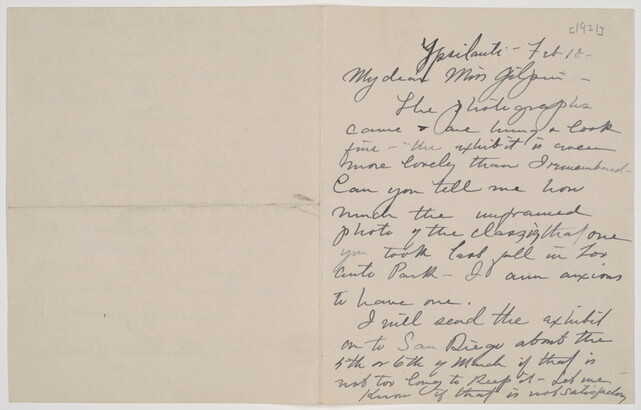 [1921]
Ypsilanti - Feb 18 -
My dear Miss Gilpin -
The photographs
came & are hung & look
fine - the exhibit is even
more lovely than I remembered -
Can you tell me how
much the unframed
photo of the
you took last fall in
Park - I am anxious
to have one.
I will send the exhibit
on to San Diego about the
5th or 6th of March if that is
not too long to keep it - Let me
Know if that is not satisfactory